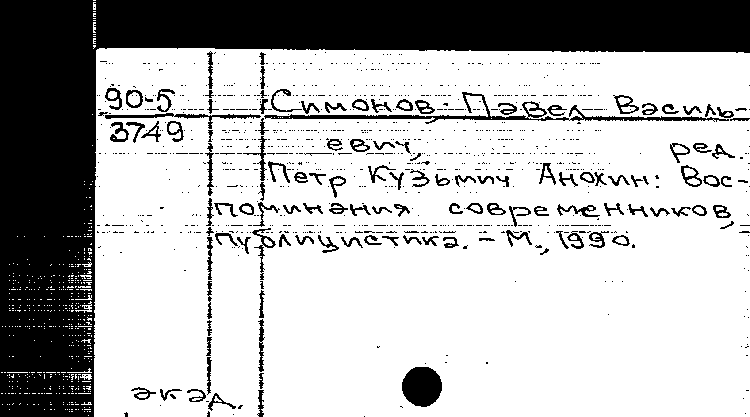 90-5 Симонов, Павел Василь-
3749 евич, ред.
Петр Кузьмич Анохин: Вос-
поминания современников,
публицистика. – М., 1990.
акад.